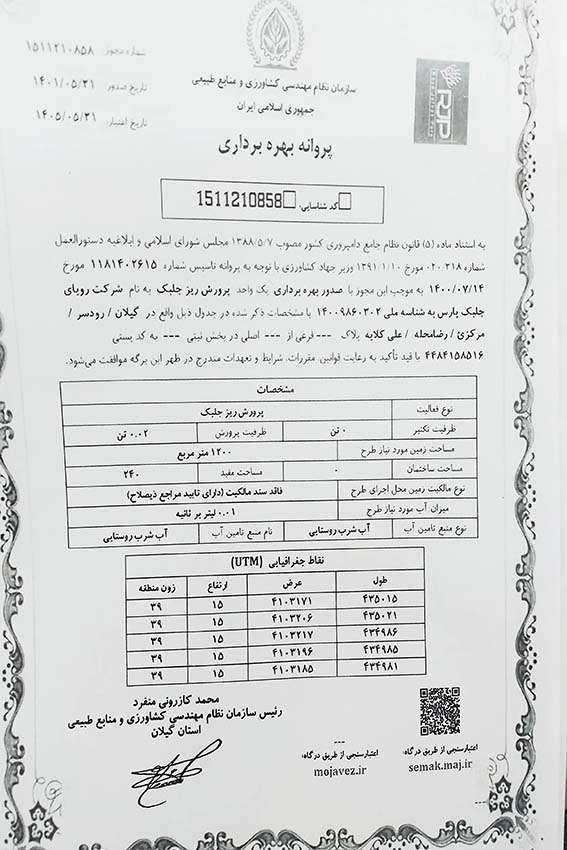 شماره مجوز: ۱۵۱۱۲۱۰۸۵۸
تاریخ صدور: ۱۴۰۱/۰۵/۳۱
تاریخ اعتبار: ۱۴۰۵/۰۵/۳۱
سازمان نظام مهندسی کشاورزی و منابع طبیعی
جمهوری اسلامی ایران
پروانه بهره برداری
کد شناسایی: 1511210858
به استناد ماده (۵) قانون نظام جامع دامپروری کشور مصوب ۱۳۸۸/۵/۷ مجلس شورای اسلامی و ابلاغیه دستورالعمل
شماره ۰۲۰/۳۱۸ مورخ ۱۳۹۱/۱/۱۰ وزیر جهاد کشاورزی با توجه به پروانه تاسیس شماره ۱۱۸۱۴۰۲۶۱۵ مورخ
۱۴۰۰/۰۷/۱۴ به موجب این مجوز با صدور بهره برداری یک واحد پرورش ریز جلبک به نام شرکت رویای
جلبک پارس به شناسه ملی ۱۴۰۰۹۸۶۰۳۰۲ با مشخصات ذکر شده در جدول ذیل واقع در گیلان / رودسر /
مرکزی / رضامحله / علی کلایه پلاک --- فرعی از --- اصلی در بخش ثبتی --- به کد پستی
۴۴۸۴۱۵۸۵۱۶ با قید تأکید به رعایت قوانین، مقررات، شرایط و تعهدات مندرج در ظهر این برگه موافقت می‌شود.
مشخصات
نوع فعالیت پرورش ریز جلبک
ظرفیت تکثیر ۰ تن ظرفیت پرورش ۰.۰۲ تن
مساحت زمین مورد نیاز طرح ۱۲۰۰ متر مربع
مساحت ساختمان ۰ مساحت مفید ۲۴۰
نوع مالکیت زمین محل اجرای طرح فاقد سند مالکیت (دارای تایید مراجع ذیصلاح)
میزان آب مورد نیاز طرح ۰.۰۱ لیتر بر ثانیه
نوع منبع تامین آب آب شرب روستایی نام منبع تامین آب آب شرب روستایی
نقاط جغرافیایی (UTM)
طول عرض ارتفاع زون منطقه
۴۳۵۰۱۵ ۴۱۰۳۱۷۱ ۱۵ ۳۹
۴۳۵۰۲۱ ۴۱۰۳۲۰۶ ۱۵ ۳۹
۴۳۴۹۸۶ ۴۱۰۳۲۱۷ ۱۵ ۳۹
۴۳۴۹۸۵ ۴۱۰۳۱۹۶ ۱۵ ۳۹
۴۳۴۹۸۱ ۴۱۰۳۱۸۵ ۱۵ ۳۹
محمد کازرونی منفرد
رئیس سازمان نظام مهندسی کشاورزی و منابع طبیعی
استان گیلان
اعتبارسنجی از طریق درگاه:
semak.maj.ir
اعتبارسنجی از طریق درگاه:
mojavez.ir